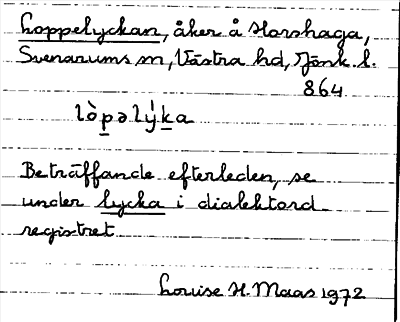 Loppelyckan, åker å Horshaga,
Svenarums sn, Västra hd, Jönk. l.
864
lòp̲əlýk̲a
Beträffande efterleden, se
under lycka i dialektord-
registret
Louise H. Maas 1972